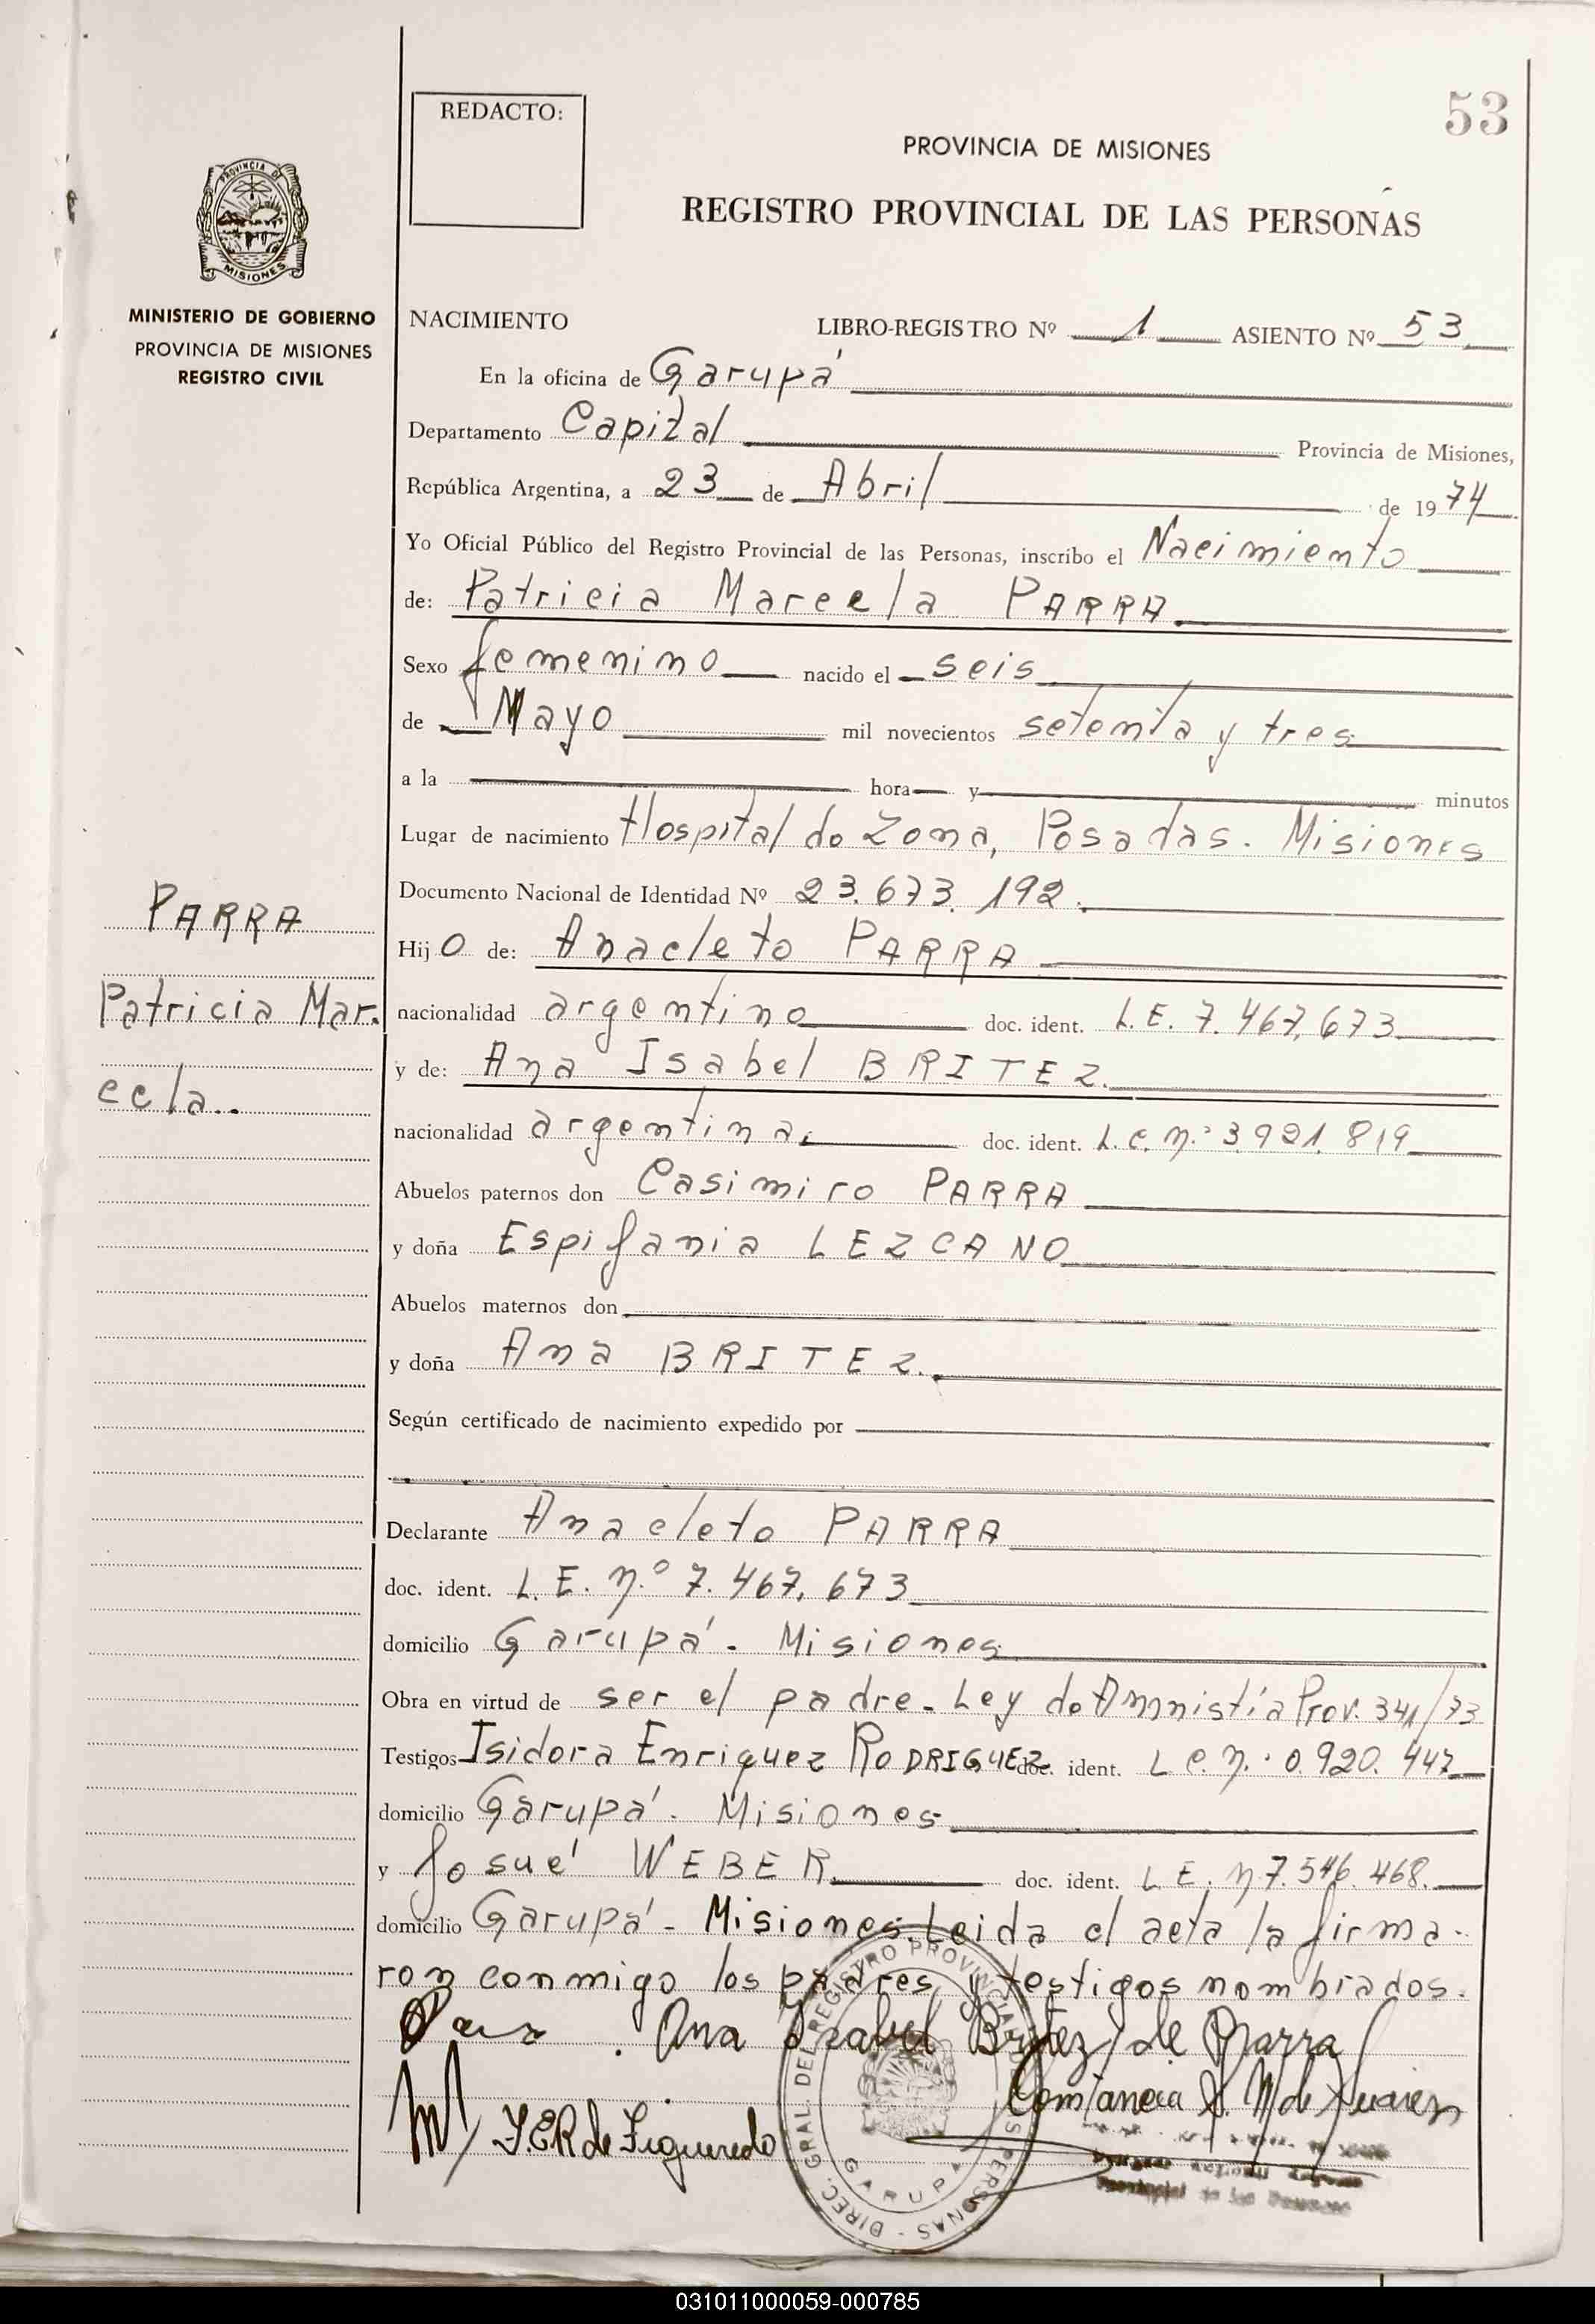 53
REDACTO:
PROVINCIA DE MISIONES
REGISTRO PROVINCIAL DE LAS PERSONAS
PROVINCIA DE
MISIONES
MINISTERIO DE GOBIERNO
PROVINCIA DE MISIONES
REGISTRO CIVIL
NACIMIENTO LIBRO-REGISTRO Nº 1 ASIENTO Nº 53
En la oficina de Garupá
Departamento Capital Provincia de Misiones,
República Argentina, a 23 de Abril de 1974
Yo Oficial Público del Registro Provincial de las Personas, inscribo el Nacimiento
de: Patricia Marcela PARRA
Sexo femenino nacido el seis
de Mayo mil novecientos setenta y tres
a la hora y minutos
Lugar de nacimiento Hospital de Zona, Posadas. Misiones
Documento Nacional de Identidad Nº 23.673.192.
Hijo de: Anacleto PARRA
nacionalidad argentino doc. ident. L.E. 7.467.673
y de: Ana Isabel BRITEZ.
nacionalidad argentina. doc. ident. L.C. n.º 3.921.819
Abuelos paternos don Casimiro PARRA
y doña Espifania LEZCANO
Abuelos maternos don
y doña Ana BRITEZ.
Según certificado de nacimiento expedido por
Declarante Anacleto PARRA
doc. ident. L.E. n.º 7.467.673
domicilio Garupá - Misiones
Obra en virtud de ser el padre - Ley de Amnistía Prov. 341/73
Testigos Isidora Enriquez RODRIGUEZ doc. ident. L.C. n.º 0.920.447
domicilio Garupá - Misiones
y Josué WEBER. doc. ident. L.E. n 7.546.468.
domicilio Garupá - Misiones. Leida el acta la firma-
ron conmigo los padres y testigos nombrados.
PARRA
Patricia Mar.
cela..
Ana Isabel Britez de Parra
I.E.R de Figueredo
DIREC. GRAL. DEL REGISTRO PROVINCIAL DE LAS PERSONAS
GARUPA
031011000059-000785